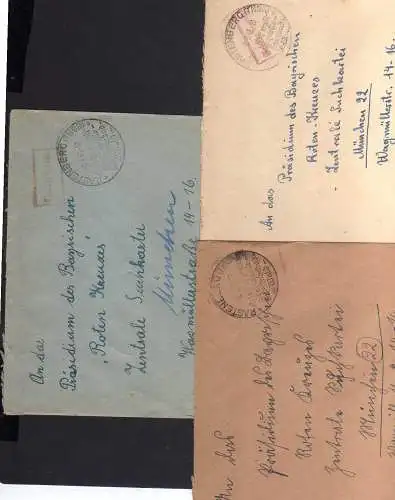 An das
Präsidium des Bayrischen
"Roten Kreuzes"
Zentrale Suchkartei
München
Wagmüllerstraße 14-16.
An das
Präsidium des Bayrischen
Roten-Kreuzes
- Zentrale Suchkartei
München 22
Wagmüllerstr. 14-16.
An das
Präsidium des Bayrischen
Roten Kreuzes
Zentrale Suchkartei
München 22